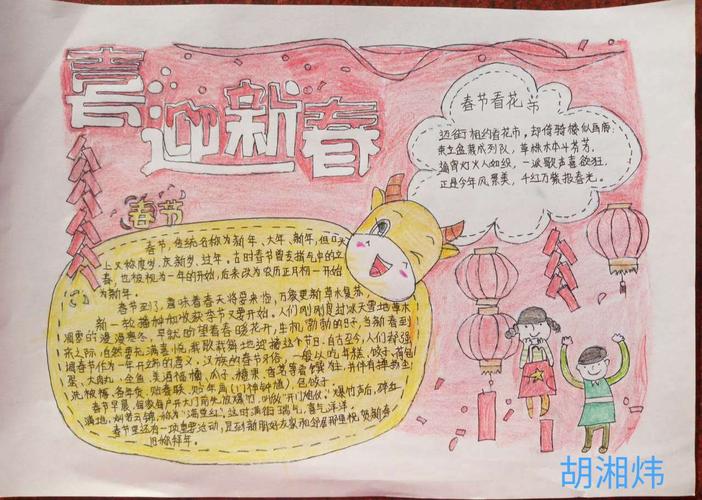 喜迎新春
春节看花市
迈街相约看花市,却倚骑楼似马扇。
束立盆栽成列队,草株木本斗芳芳。
通宵灯火人如织,一派歌声喜欲狂。
正是今年风景美,千红万紫报春光。
春节
春节,传统名称为新年、大年、新年,但口头
上又称度岁、庆新岁、过年。古时春节曾专指节气中的立
春,也被视为一年的开始,后来改为农历正月初一开始
为新年。
春节到了,意味着春天将要来临,万象更新草木复苏,
新一轮播种和收获季节又要开始。人们刚刚度过冰天雪地草木
凋零的漫漫寒冬,早就盼望着春暖花开的日子,当新春到
来之际,自然要充满喜悦载歌载舞地迎接这个节日。自古至今,人们都强
调春节作为一年开立的意义。汉族的春节习俗,一般以吃年糕、饺子、
大肉丸、全鱼、美酒、福橘、瓜子、糖果、
洗被褥、备年货、贴春联、贴年角(门神钟馗)、包饺子
春节早晨,
满地,灿若云锦,称为"满堂红",这时满街瑞气,喜气洋洋。
春节里还有一项重要活动,是到新朋好友家和邻居那里祝贺新春
旧称拜年。
胡湘炜